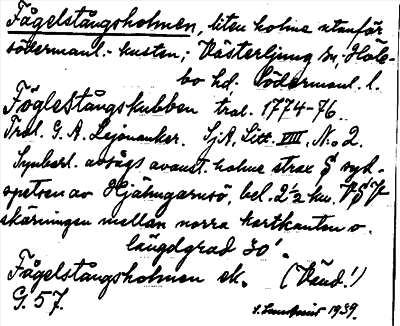 Fågelstångsholmen, liten holme utanför
södermanl. kusten; Västerljung sn, Höle-
bo hd, Södermanl. l.
FögleStångskubben trol. 1774-76.
Trol. G. A. Lejonanker. SjA, Litt. VIII, No 2.
Synbarl. avsågs avanst. holme strax S syd-
spetsen av Hjälmgarnsö, bel. 2½ km. VSV
skärningen mellan norra kartkanten o.
längdgrad 30'.
Fågelstångsholmen ek. (Vänd!)
G. 57.
1939.